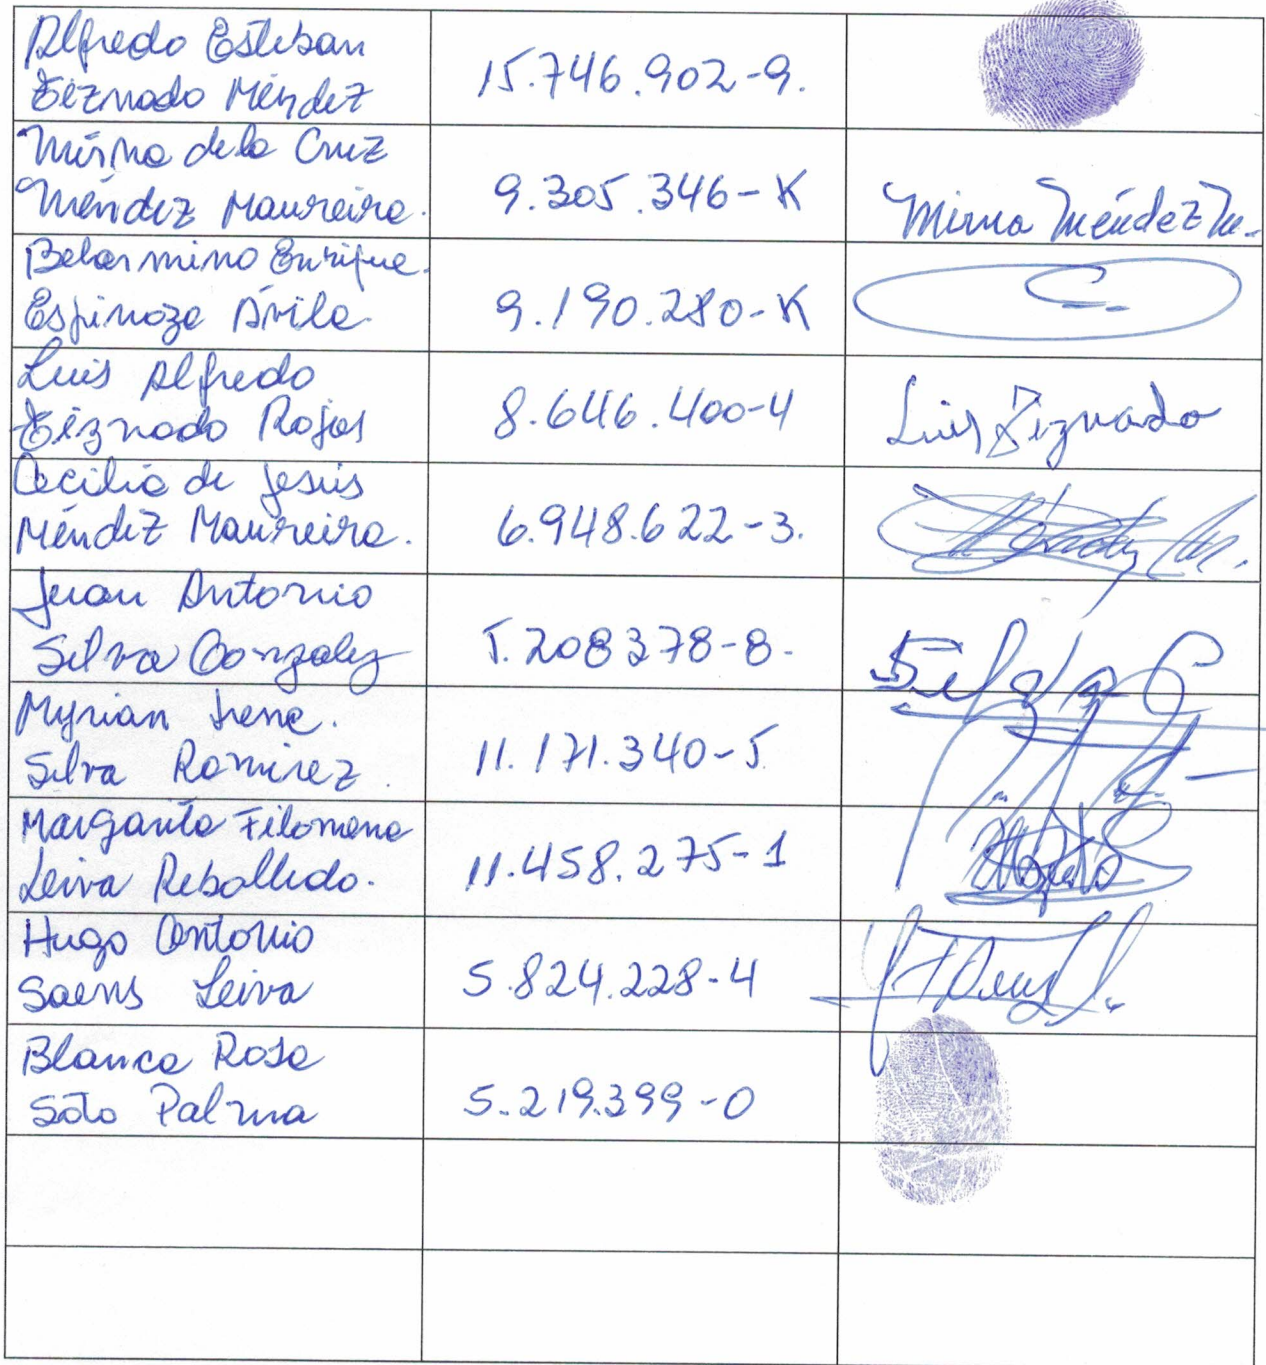 Alfredo Esteban
Tiznado Méndez
15.746.902-9.
Mirna de la Cruz
Méndez Maureira.
9.305.346-K
Mirna Méndez M.
Belarmino Enrique.
Espinoza Ávila.
9.190.280-K
Luis Alfredo
Tiznado Rojas
8.646.400-4
Luis Tiznado
Cecilia de Jesús
Méndez Maureira.
6.948.622-3.
Juan Antonio
Silva Gonzalez
5.208378-8.
Myrian Irene.
Silva Ramirez.
11.171.340-5
Margarita Filomena
Leiva Rebolledo.
11.458.275-1
Hugo Antonio
Saens Leiva
5.824.228-4
Blanca Rosa
Soto Palma
5.219.399-0